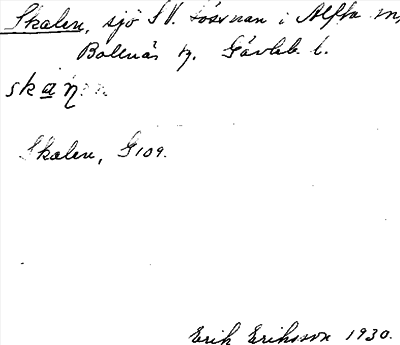 Skalen, sjö SV. Lösnan i Alfta sn,
Bollnäs tg. Gävleb. l.
skaŋ
Skalen, G109.
Erik Eriksson 1930.